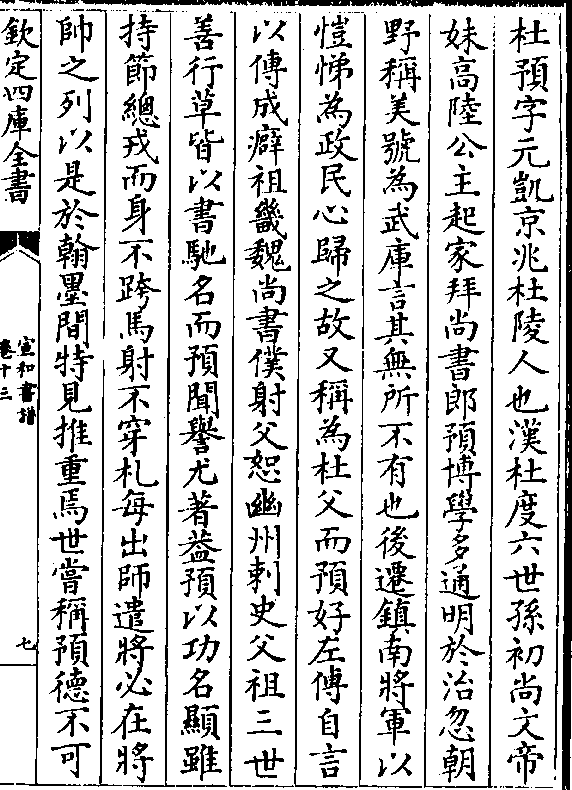 杜預字元凱京兆杜陵人也漢杜度六世孫初尚文帝
妹高陸公主起家拜尚書郎預博學多通明於治忽朝
野稱美號為武庫言其無所不有也後遷鎮南將軍以
愷悌為政民心歸之故又稱為杜父而預好左傳自言
以傳成癖祖畿魏尚書僕射父恕幽州刺史父祖三世
善行草皆以書馳名而預聞譽尤著益預以功名顯雖
持節總戎而身不跨馬射不穿札每出師遣將必在將
帥之列以是於翰墨間特見推重焉世嘗稱預德不可
欽定四庫全書
宣和書譜
卷十三
七